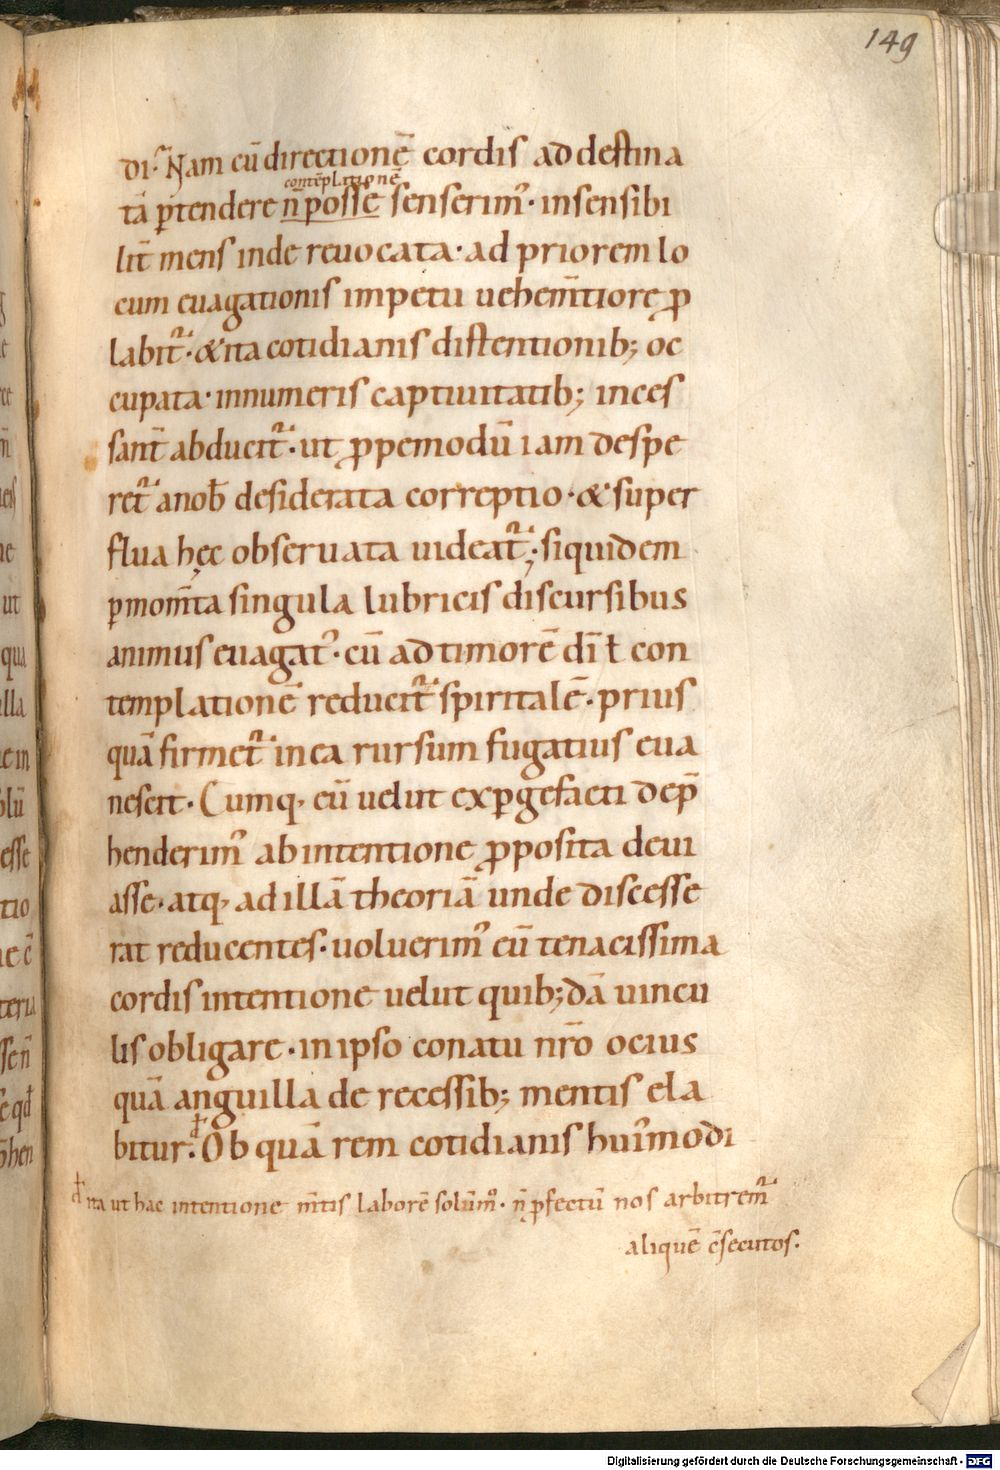 149
di. Nam cū directionē cordis ad destina
contēplationē
tā p̱tendere n̄ posse senserim᷒· insensibi
lit̄ mens inde reuocata· ad priorem lo
cum euagationis impetu uehem̄tiore ꝓ
labit᷑· &ita cotidianis distentionib; oc
cupata· innumeris captiuitatib; inces
sant̄ abducit᷑· ut ꝓpemodū iam despe
ret᷑ anob̄ desiderata correptio· & super
flua hęc obseruata uideat᷑; siquidem
ꝑmom̄ta singula lubricis discursibus
animus euagat᷒· cū adtimorē dī ł con
templationē reducit᷑ spiritalē· prius
quā firmet᷑ inea rursum fugatius eua
nescit· Cumq· eū uelut exꝑgefacti dep̄
henderim᷒ abintentione ꝓposita deui
asse· atq· ad illā theoriā unde discesse
rat reducentes· uoluerim᷒ eū tenacissima
cordis intentione uelut quib;dā uincu
lis obligare· inipso conatu nr̄o ocius
quā anguilla de recessib; mentis ela
bitur. Ob quā rem cotidianis hui᷒modi
ita ut hac intentione m̄tis laborē solūm᷒· n̄ ꝑfectū nos arbitrem᷑
aliquē c̄secutos·
Digitalisierung gefördert durch die Deutsche Forschungsgemeinschaft - DFG